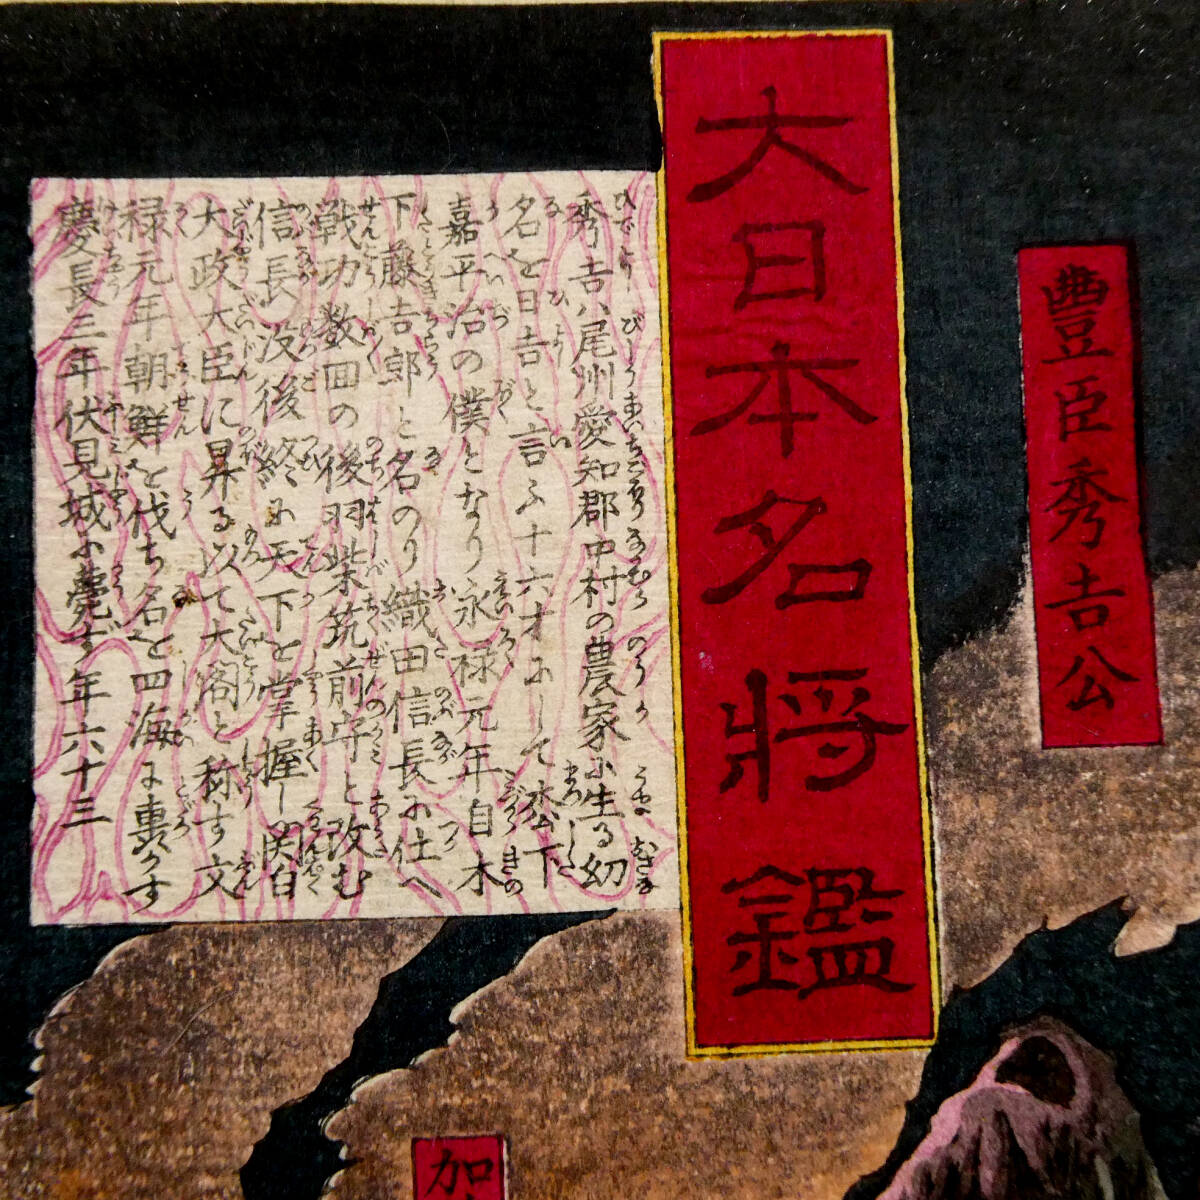 豊臣秀吉公
大日本名将鑑
秀吉ハ尾州愛知郡中村の農家に生る幼
名を日吉と言ふ十六才にして松下
嘉平治の僕となり永禄元年自木
下藤吉郎と名のり織田信長に仕へ
戦功数回の後羽柴筑前守と改む
信長没後終に天下を掌握し関白
大政大臣に昇る以て大閤と称す文
禄元年朝鮮を伐ち名を四海に轟かす
慶長三年伏見城に薨ず年六十三
加